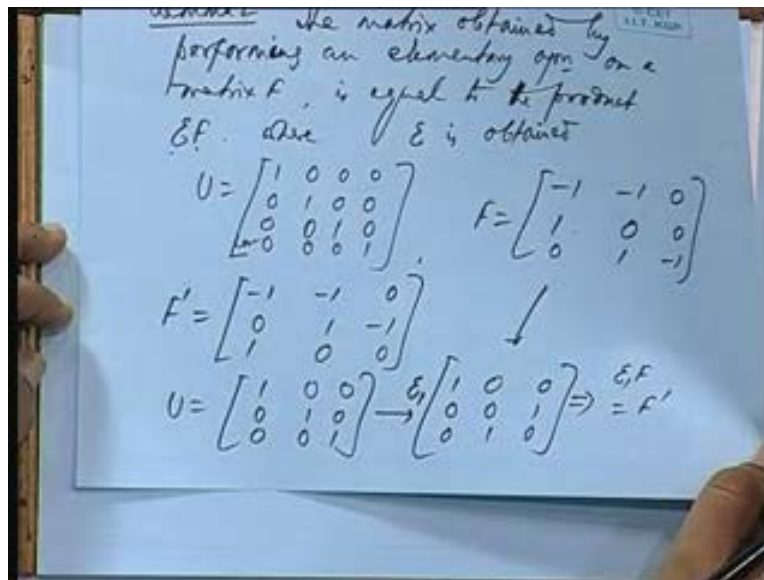 the matrix obtained by
performing an elementary opn on a
matrix F, is equal to the product
EF. where E is obtained
U = [1 0 0 0
0 1 0 0
0 0 1 0
0 0 0 1],
F = [-1 -1 0
1 0 0
0 1 -1]
F' = [-1 -1 0
0 1 -1
1 0 0]
U = [1 0 0
0 1 0
0 0 1] → E₁ [1 0 0
0 0 1
0 1 0] ⇒ E₁F
= F'
I.I.T. KGP